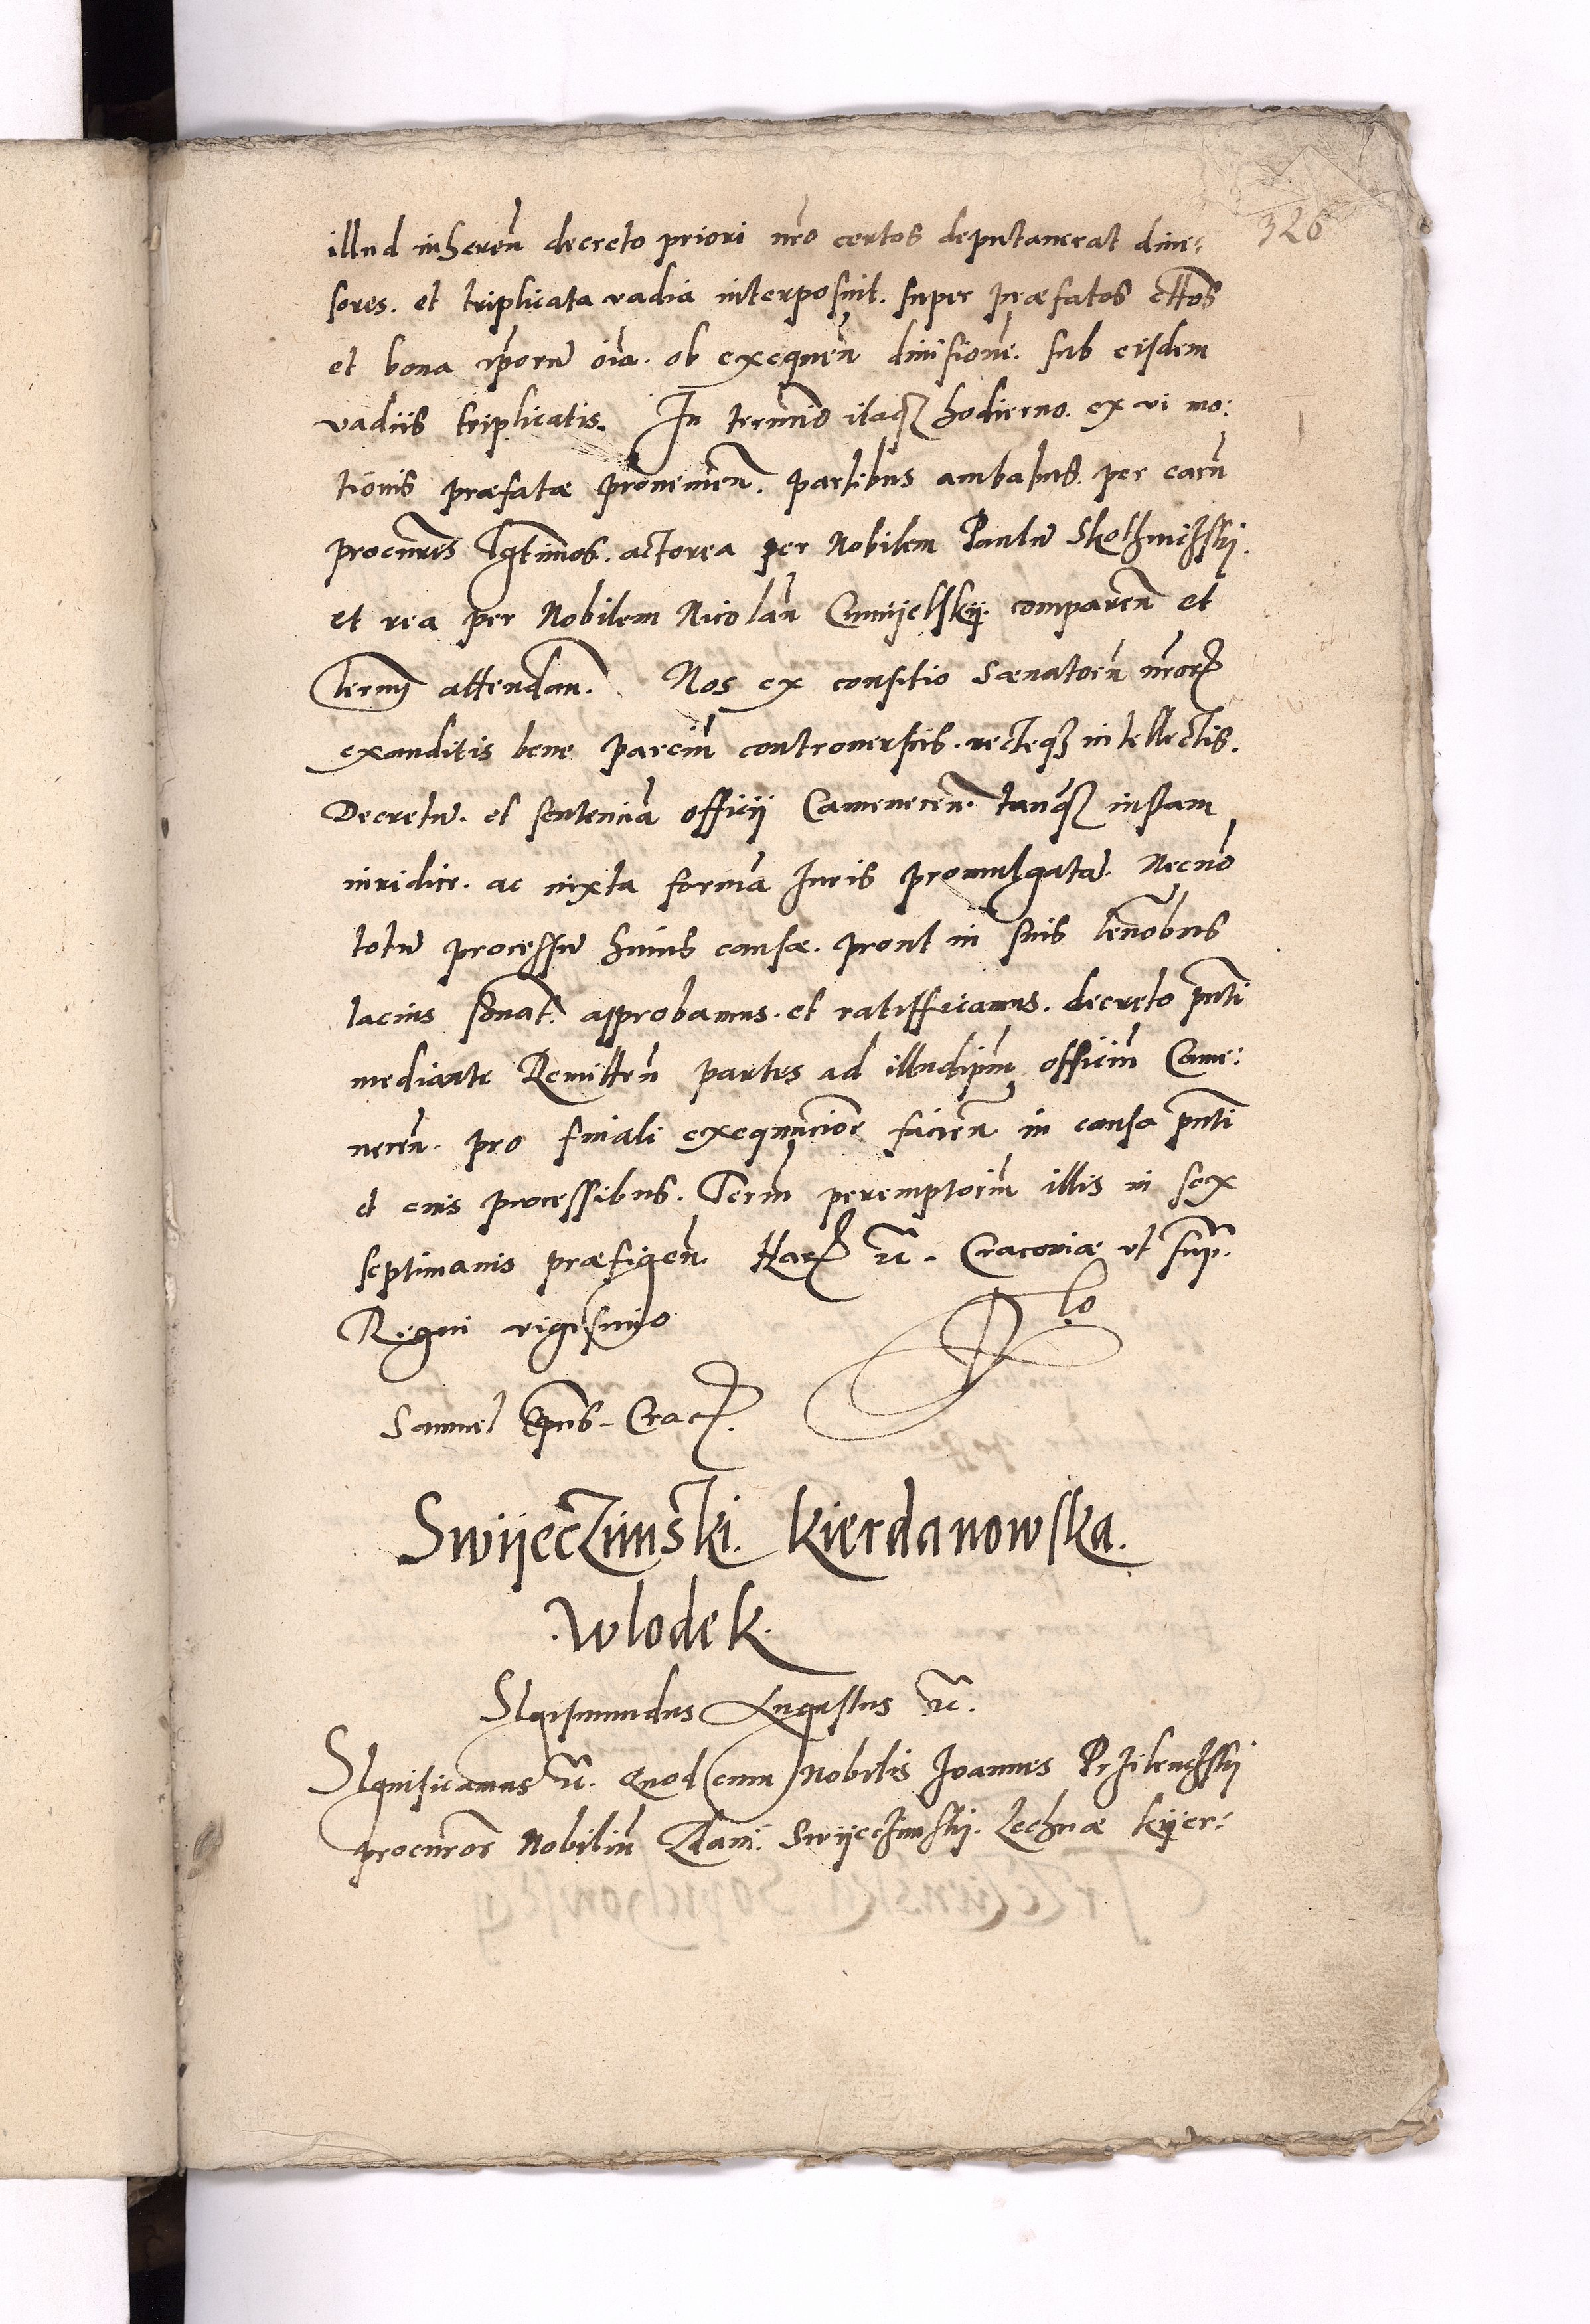 326
illud inheren̄ decreto priori nr̄o certos deputauerat diui:
sores. et triplicata vadia interposuit. super præfatos c̄ttos
et bona ip̄orū oīa. ob exequen̄ diuisionē. sub eisdem
vadiis triplicatis. In termīo itaqꝫ hodierno. ex vi mo:
tionis præfatæ prouenien̄. partibus ambabus. per earū
procur̄es lgt̄imos. actorea per Nobilem Paulū
et rea per Nobilem Nicolaū comparen̄ et
termī attendan̄. Nos ex consilio Sænatorū nr̄orꝫ
exauditis bene parciū controuersiis. recteqꝫ intellectis.
Decretū. et sentenciā officij Camenecen̄. tanqꝫ iustam
iuridice. ac iuxta formā Iuris promulgatā. Necnō
totū processū huius causæ. prout in suis ten̄obus
lacius sonat. approbamus. et ratifficamus. decreto pn̄ti
mediante Remitten̄ partes ad illudip̄m officiū Came:
necen̄. pro finali exequucione facien̄ in causa pn̄ti
et eius processibus. Term̄ peremptoriū illis in sex
septimanis præfigen̄. Harꝫ ꝛc̄. Cracouiæ vt sup̄.
Regni vigesimo
Samuel Ep̄us Cracꝫ.
Swijeczimski. Kierdanowska.
.Wlodek.
Sigismundus Augustus ꝛc̄.
Significamus ꝛc̄. Quod cum Nobilis Joannes
procur̄or Nobiliū Adami Swijeczimskij. Zochnæ kijer: